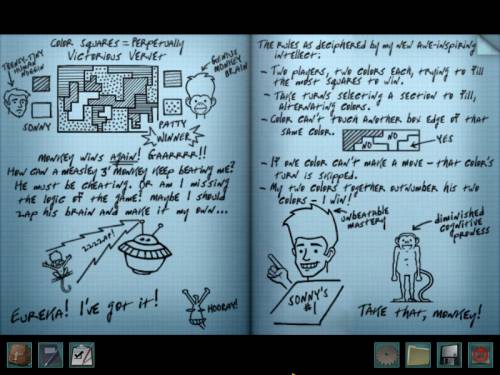 COLOR SQUARES = PERPETUALLY
VICTORIOUS VERVET
TEENSY-TINY
HUMAN
NOGGIN
GENIUS
MONKEY
BRAIN
SONNY
PATTY
WINNER
MONKEY WINS AGAIN! GAARRRR!!
HOW CAN A MEASLEY 3' MONKEY KEEP BEATING ME?
HE MUST BE CHEATING. OR AM I MISSING
THE LOGIC OF THE GAME? MAYBE I SHOULD
ZAP HIS BRAIN AND MAKE IT MY OWN...
ZZZZAP!
EUREKA! I'VE GOT IT!
HOORAY!
THE RULES AS DECIPHERED BY MY NEW AWE-INSPIRING
INTELLECT:
- TWO PLAYERS, TWO COLORS EACH, TRYING TO FILL
THE MOST SQUARES TO WIN.
- TAKE TURNS SELECTING A SECTION TO FILL,
ALTERNATING COLORS.
- COLOR CAN'T TOUCH ANOTHER BOX EDGE OF THAT
SAME COLOR.
NO
NO
YES
- IF ONE COLOR CAN'T MAKE A MOVE - THAT COLOR'S
TURN IS SKIPPED.
- MY TWO COLORS TOGETHER OUTNUMBER HIS TWO
COLORS - I WIN!
UNBEATABLE
MASTERY
DIMINISHED
COGNITIVE
PROWESS
SONNY'S
#1
TAKE THAT, MONKEY!